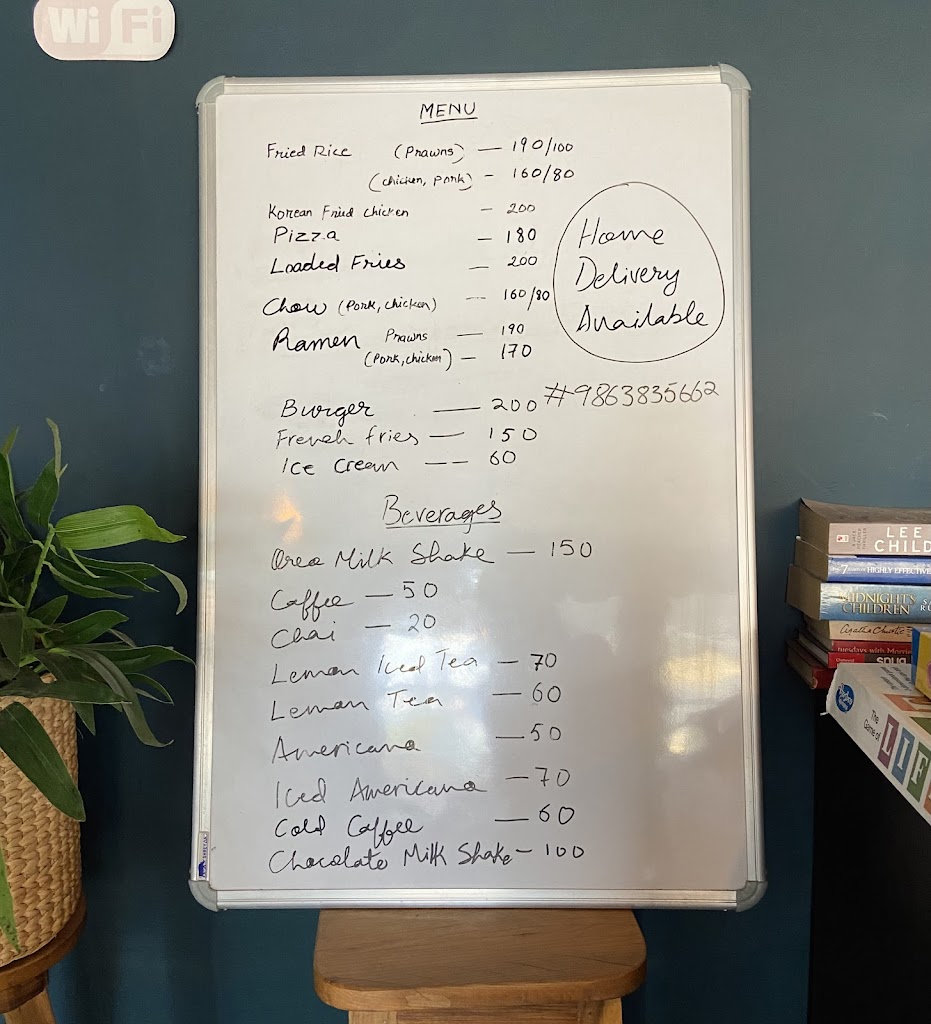 Wi Fi
MENU
Fried Rice (Prawns) — 190/100
(chicken, pork) - 160/80
Korean Fried chicken - 200
Pizza - 180
Loaded Fries — 200
Chow (Pork, chicken) — 160/80
Ramen Prawns — 190
(Pork, chicken) — 170
Home
Delivery
Available
#9863835662
Burger — 200
French fries — 150
Ice cream — 60
Beverages
Oreo Milk Shake — 150
Coffee — 50
Chai — 20
Lemon Iced Tea — 70
Lemon Tea — 60
Americano — 50
Iced Americano — 70
Cold Coffee — 60
Chocolate Milk Shake — 100
LEE
CHILD
The 7 HABITS OF HIGHLY EFFECTIVE
MIDNIGHT'S
CHILDREN
Agatha Christie
tuesdays with Morrie
Hasbro
The
Game of
LIF